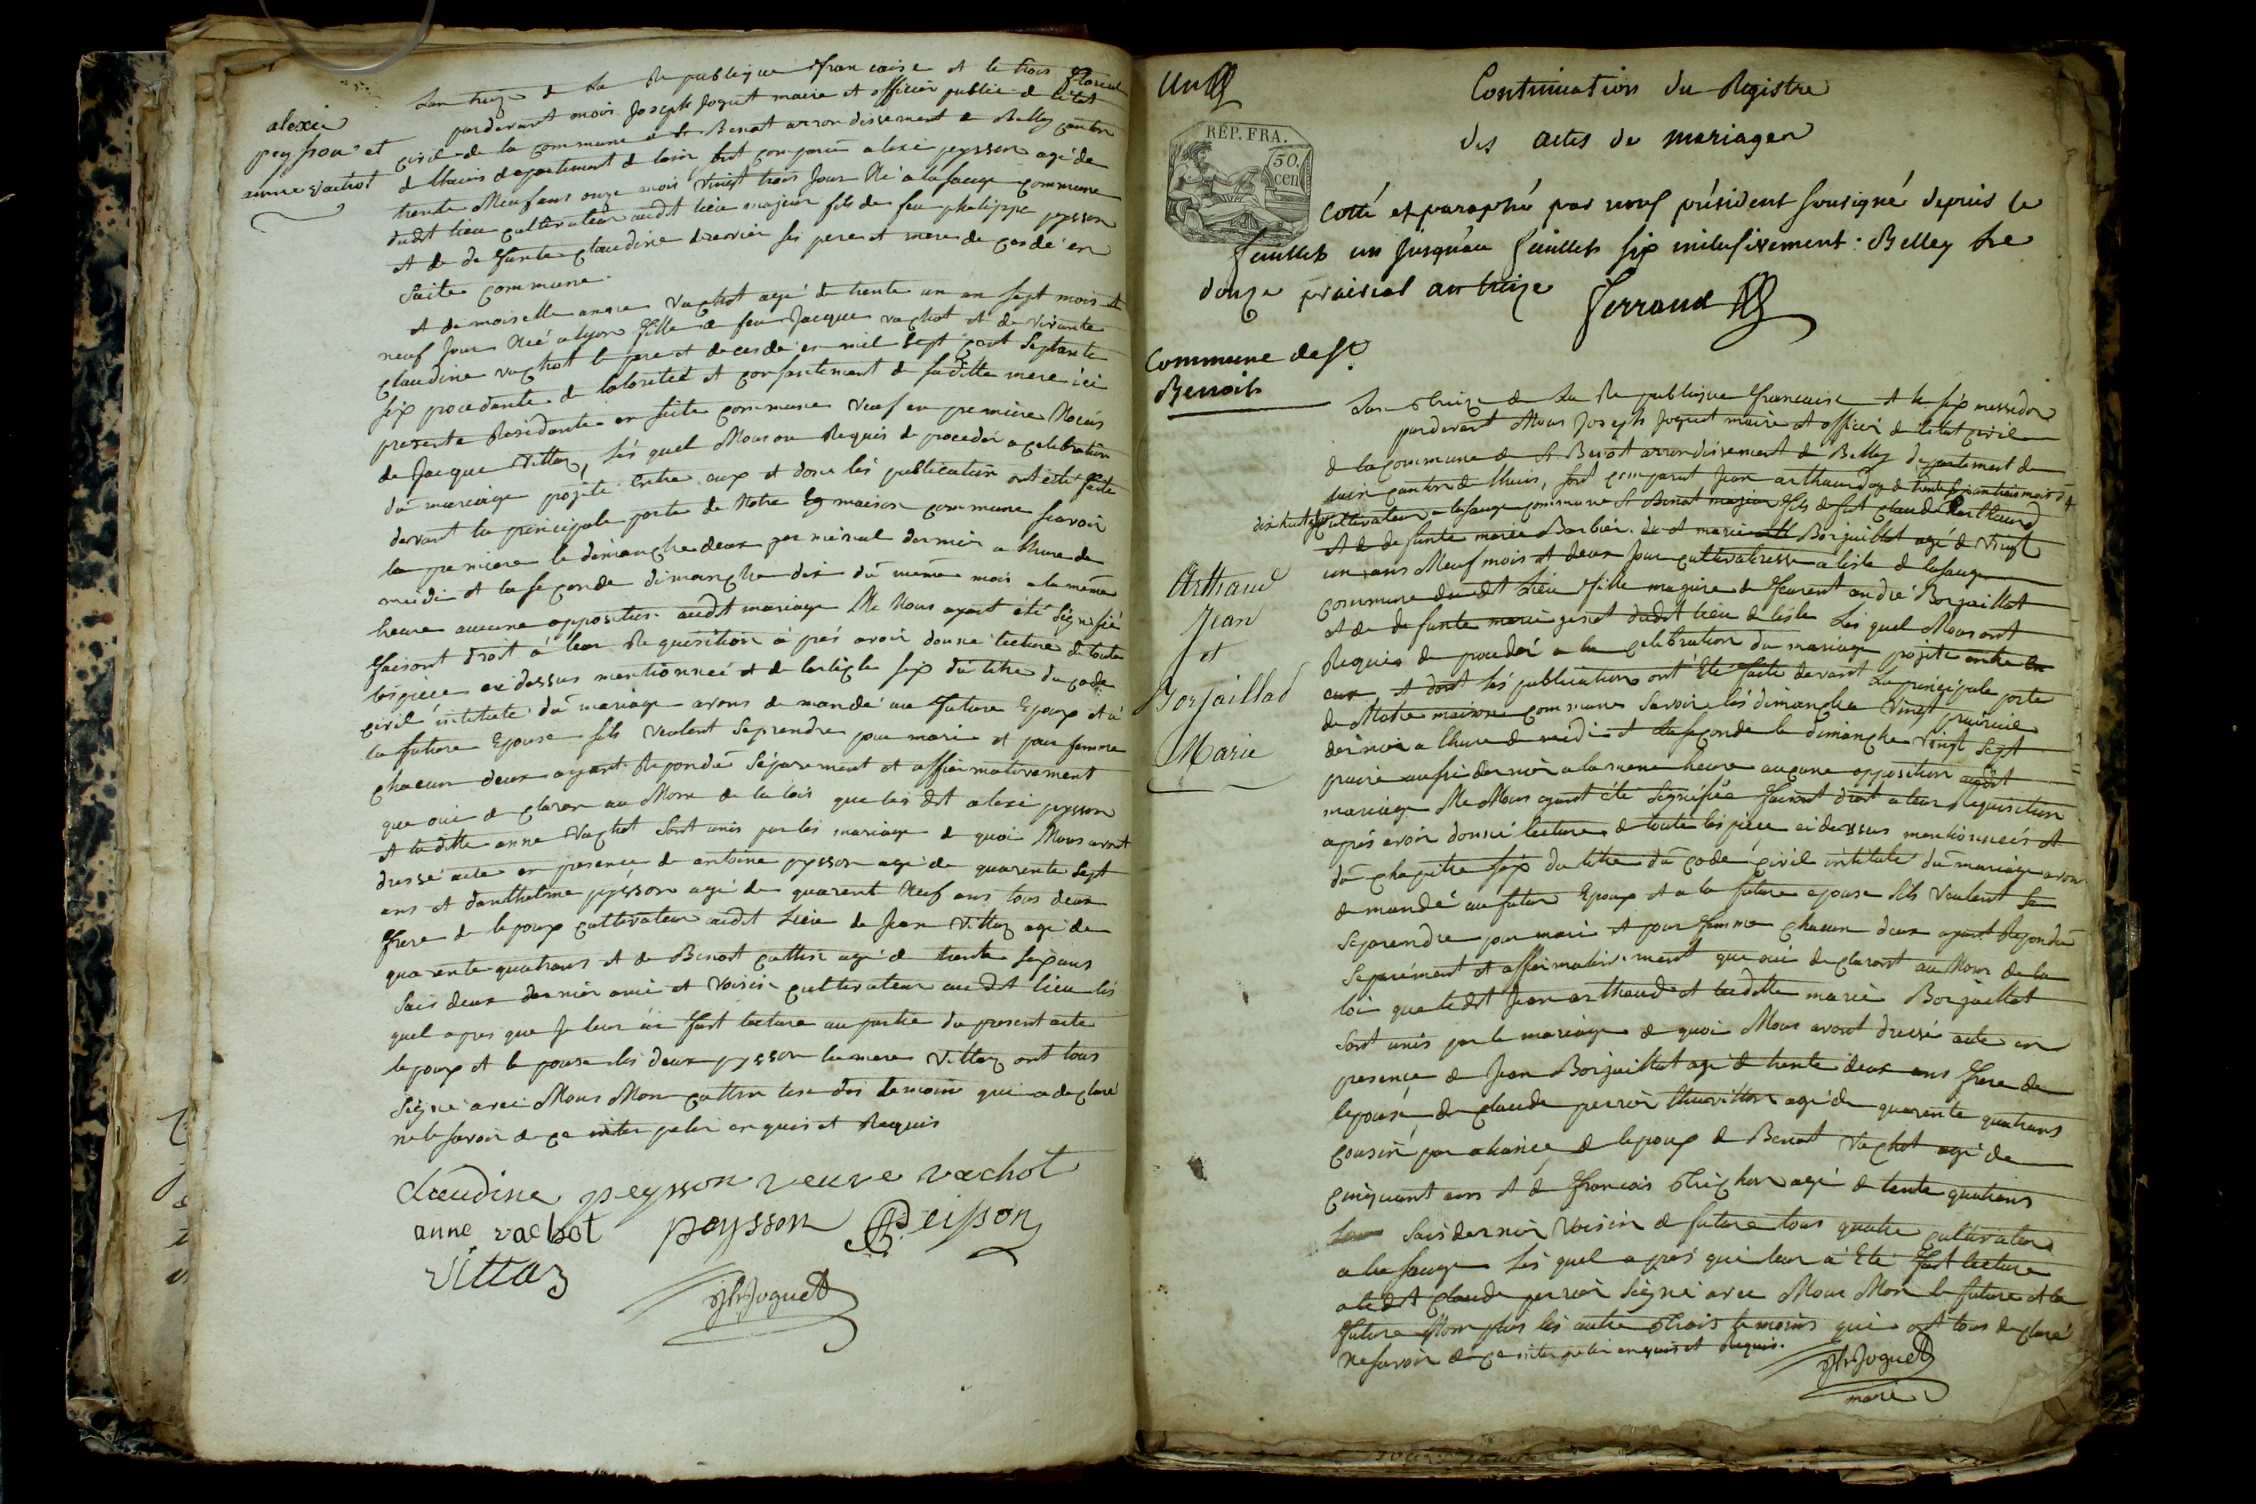 alexi
peysson et
anne vachot
Lan treize de La Republique francaise et le trois floreal
pardevant nous Joseph Joguet maire et officier public de letat
civil de la commune de St Benoit arrondissement de Belley canton
de lhuis departement de lain est comparu alexi peysson agé de
trente Neuf ans onze mois vingt trois Jour Né a la sauge commune
dudt lieu cultivateur audt lieu majeur fils de feu philippe peysson
et de defunte claudine ses pere et mere decedé en
suite commune
et demoiselle anne vachot agé de trente un an sept mois et
neuf Jour Né a lyon fille de feu Jacque vachot et de vivante
claudine vachot le pere et decedé en mil sept cent septante
six procedante de lotorité et consentement de saditte mere ici
presente Residante en suite commune veuf en premiere Noces
de Jacque vittoz, les quel Nous on Requis de proceder a celebration
du mariage projeté entre eux et donc les publication ont été faite
devant la principale porte de Notre maison commune scavoir
la premiere le dimanche deux germinal dernier a lheure de
midi et la seconde dimanche dix du meme mois a la meme
heure aucune opposition audt mariage Ne Nous ayant été signifié
faisant droit á leur Requisition á prés avoir donne lecture de toute
les piece ci dessus mentionneé et de larticle six du titre du code
civil intitulé du mariage avons demandé au future Epoux et á
la future Epouse sils veulent se prendre pour mari et pour femme
chacun deux ayant Repondu séparement et affirmativement
que oui declaron au Nom de la lois que les dt alexi peysson
et laditte anne vachot sont unis par les mariage de quoi Nous avont
dressé acte en presence de antoine peysson agé de quarente sept
ans et danthelme peysson agé de quarent Neuf ans tous deux
frere de lepoux cultivateur audt Lieu de Jean vittoz agé de
quarente quatrans et de Benoit cattin agé de trente six ans
sais deux dernier ami et voisin cultivateur audt lieu les
quel apres que Je leur ai fait lecture au partie du present acte
lepoux et lepouse les deux peysson la mere vittoz ont tous
Signé avec Nous Non cattin lun des temoin qui a declaré
ne le savoir de ce inter peler enquis et Requis
claudine peysson veuve vachot
anne vachot peysson Peisson
vittoz
Jh Joguet
un
Continuation du Registre
des actes de mariages
RÉP. FRA.
50. cen
Cotté et paraphé par nous président sousigné depuis le
feuillet un jusqu'au feuillet six inclusivement. Belley le
douze prairial an treize Ferrand
Commune de St.
Benoit
Lan treize de La Republique francaise et le six messidor
pardevant Nous Joseph Joguet maire et officier de létat civil
de la commune de St Benoit arrondissement de Belley departement de
lain canton de lhuis, sont comparut Jean arthaud agé de trente six an trois mois
dix huit jour cultivateur a lasauge commune St Benoit majeur fils de fut claude arthaud
et de defunte marie Barbier. de et marie Borjaillot agé de vingt
un ans Neuf mois et deux Jour cultivatrisse a liste de lasauge
commune du dt Lieu fille majeure de andré Borjaillot
et de defunte marie ginet dudt lieu de liste les quel Nous ont
Requis de procedér a la celebration du mariage projeté entre
eux, et dont les publication ont Eté faite devant La principale porte
de Notre maison commune savoir les dimanche vingt prairial
dernier a lheure de midi et la seconde le dimanche vingt sept
prairi aussi dernier a la mene heure aucune opposition audt
mariage Ne Nous ayant été signifiée faisant droit a leur Requisition
aprés avoir donné lecture de toute les piece ci dessus mentionneés et
du chapitre six du titre du code civil intitulé du mariage avons
demandé au futur Epoux et a la future epouse sils veulent se
se prendre pour mari et pour femme chacun deux ayant Repondu
separément et affirmative. ment que oui declaront au Nom de la
loi que ledt Jean arthaud et laditte marie Borjaillot
sont unis par le mariage de quoi Nous avont dressé acte en
presence de Jean Borjaillot agé de trente deux ans frere de
lepousé, de claude perrier agé de quarente quatrans
cousin par aliance de lepoux de Benoit vachot agé de
cinquant ans et de francois Trichon agé de tente quatrans
sais dernier voisin de future tous quatre cultivateur
a la sauge Les quel a prés qui leur a Eté fait lecture
a ledt claude perrier Signé avec Nous Non le future et la
future Non plus les autre trois temoins qui ont tous declaré
Ne savoir de ce inter peler enquis et Requis.
Arthaud
Jean
et
Borjaillad
Marie
Jh Joguet
maire